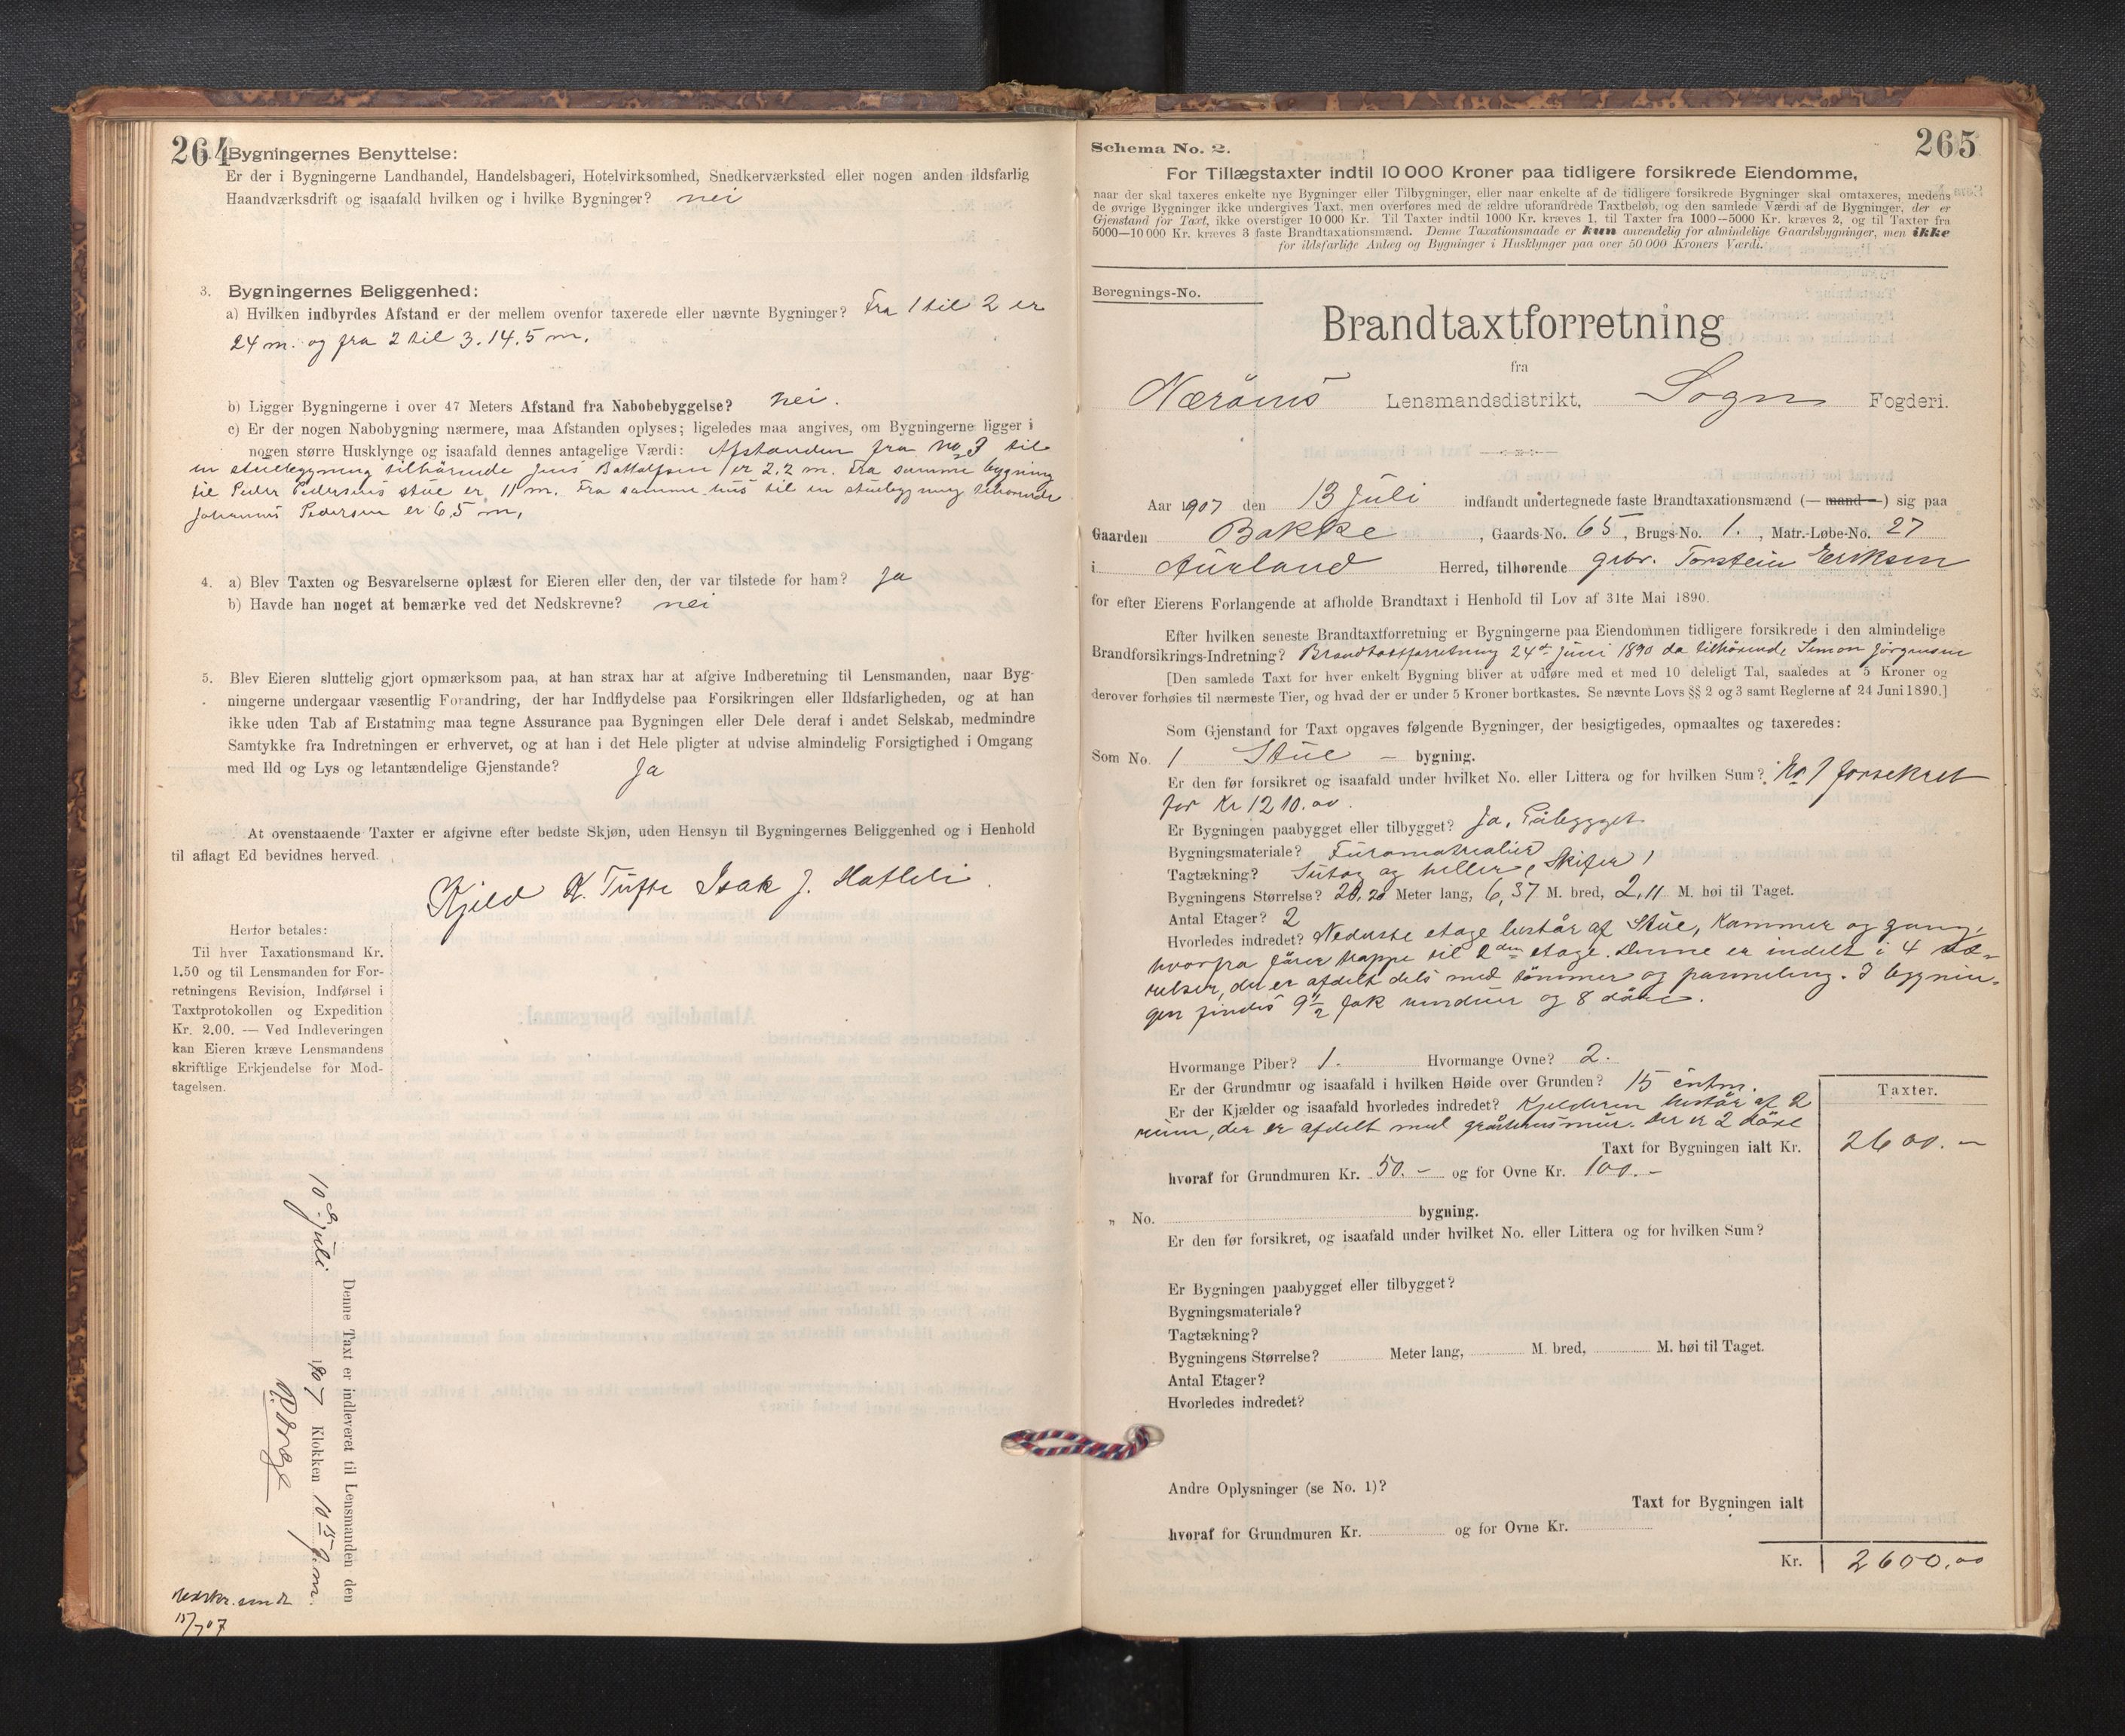 264
Bygningernes Benyttelse:
Er der i Bygningerne Landhandel, Handelsbageri, Hotelvirksomhed, Snedkerværksted eller nogen anden ildsfarlig
Haandværksdrift og isaafald hvilken og i hvilke Bygninger? nei
3. Bygningernes Beliggenhed:
a) Hvilken indbyrdes Afstand er der mellem ovenfor taxerede eller nævnte Bygninger? Fra 1 til 2 er
24 m. og fra 2 til 3. 14.5 m.
b) Ligger Bygningerne i over 47 Meters Afstand fra Nabobebyggelse? nei.
c) Er der nogen Nabobygning nærmere, maa Afstanden oplyses; ligeledes maa angives, om Bygningerne ligger i
nogen større Husklynge og isaafald dennes antagelige Værdi: Afstanden fra No 3 til
en stuebygning tilhörende Jens Bottolfsen er 2.2 m. Fra samme bygning
til Peder Pedersens stue er 11 m. Fra samme hus til en stuebygning tilhörende
Johannes Pedersen er 6,5 m,
4. a) Blev Taxten og Besvarelserne oplæst for Eieren eller den, der var tilstede for ham? Ja
b) Havde han noget at bemærke ved det Nedskrevne? nei
5. Blev Eieren sluttelig gjort opmærksom paa, at han strax har at afgive Indberetning til Lensmanden, naar Byg-
ningerne undergaar væsentlig Forandring, der har Indflydelse paa Forsikringen eller Ildsfarligheden, og at han
ikke uden Tab af Erstatning maa tegne Assurance paa Bygningen eller Dele deraf i andet Selskab, medmindre
Samtykke fra Indretningen er erhvervet, og at han i det Hele pligter at udvise almindelig Forsigtighed i Omgang
med Ild og Lys og letantændelige Gjenstande? Ja
At ovenstaaende Taxter er afgivne efter bedste Skjøn, uden Hensyn til Bygningernes Beliggenhed og i Henhold
til aflagt Ed bevidnes herved.
Kjeld K. Tufte Isak J. Hatleli.
Herfor betales:
Til hver Taxationsmand Kr.
1.50 og til Lensmanden for For-
retningens Revision, Indførsel i
Taxtprotokollen og Expedition
Kr. 2.00. — Ved Indleveringen
kan Eieren kræve Lensmandens
skriftlige Erkjendelse for Mod-
tagelsen.
Denne Taxt er indleveret til Lensmanden den
10de Juli 1907 Klokken 10 15 f.m.
Nedskr. sendt
15/7 07
265
Schema No. 2.
For Tillægstaxter indtil 10 000 Kroner paa tidligere forsikrede Eiendomme,
naar der skal taxeres enkelte nye Bygninger eller Tilbygninger, eller naar enkelte af de tidligere forsikrede Bygninger skal omtaxeres, medens
de øvrige Bygninger ikke undergives Taxt, men overføres med de ældre uforandrede Taxtbeløb, og den samlede Værdi af de Bygninger, der er
Gjenstand for Taxt, ikke overstiger 10 000 Kr. Til Taxter indtil 1000 Kr. kræves 1, til Taxter fra 1000—5000 Kr. kræves 2, og til Taxter fra
5000—10 000 Kr. kræves 3 faste Brandtaxationsmænd. Denne Taxationsmaade er kun anvendelig for almindelige Gaardsbygninger, men ikke
for ildsfarlige Anlæg og Bygninger i Husklynger paa over 50 000 Kroners Værdi.
Beregnings-No.
Brandtaxtforretning
fra
Næröens Lensmandsdistrikt, Sogn Fogderi.
Aar 1907 den 13 Juli indfandt undertegnede faste Brandtaxationsmænd (— mand —) sig paa
Gaarden Bakke, Gaards-No. 65, Brugs-No. 1., Matr.-Løbe-No. 27
i Aurland Herred, tilhørende grbr. Torstein Eriksen
for efter Eierens Forlangende at afholde Brandtaxt i Henhold til Lov af 31te Mai 1890.
Efter hvilken seneste Brandtaxtforretning er Bygningerne paa Eiendommen tidligere forsikrede i den almindelige
Brandforsikrings-Indretning? Brandtaxtforretning 24de Juni 1890 da tilhörende Simon Jörgensen
[Den samlede Taxt for hver enkelt Bygning bliver at udføre med et med 10 deleligt Tal, saaledes at 5 Kroner og
derover forhøies til nærmeste Tier, og hvad der er under 5 Kroner bortkastes. Se nævnte Lovs §§ 2 og 3 samt Reglerne af 24 Juni 1890.]
Som Gjenstand for Taxt opgaves følgende Bygninger, der besigtigedes, opmaaltes og taxeredes:
Som No. 1 Stue — bygning.
Er den før forsikret og isaafald under hvilket No. eller Littera og for hvilken Sum? No 1 forsekret
for Kr 1210.00.
Er Bygningen paabygget eller tilbygget? Ja, Påbygget
Bygningsmateriale? Furematrealier
Tagtækning? Sutag og heller, Skifer
Bygningens Størrelse? 20,20 Meter lang, 6,37 M. bred, 2,11 M. høi til Taget.
Antal Etager? 2
Hvorledes indredet? Nederste etage består af Stue, Kammer og gang,
hvorfra förer trappe til 2den etage. Denne er indelt i 4 væ-
relser, der er afdelt dels med tömmer og panneling. I bygnin-
gen findes 9½ fak vinduer og 8 döre.
Hvormange Piber? 1. Hvormange Ovne? 2.
Er der Grundmur og isaafald i hvilken Høide over Grunden? 15 centm.
Er der Kjælder og isaafald hvorledes indredet? Kjelderen består af 2
rum, der er afdelt med gråstensmur. Der er 2 döre
Taxter.
Taxt for Bygningen ialt Kr. 2600. —
hvoraf for Grundmuren Kr. 50. — og for Ovne Kr. 100. —
„ No. bygning.
Er den før forsikret, og isaafald under hvilket No. eller Littera og for hvilken Sum?
Er Bygningen paabygget eller tilbygget?
Bygningsmateriale?
Tagtækning?
Bygningens Størrelse? Meter lang, M. bred, M. høi til Taget.
Antal Etager?
Hvorledes indredet?
Andre Oplysninger (se No. 1)?
Taxt for Bygningen ialt
hvoraf for Grundmuren Kr. og for Ovne Kr.
Kr. 2600,00